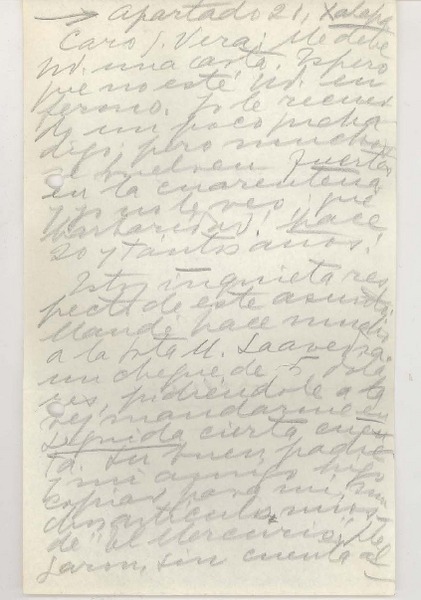 → Apartado 21, Xalapa
Caro S. Vera: Me debe
Ud. una carta. Espero
que no esté Ud. en
fermo. Yo le recuer
do un poco picha
digo, pero muchos
se vuelven fuertes
en la cuarentena
y yo no le veo ¡qué
barbaridad! hace
20 y tantos años!
Estoy inquieta res
pecto de este asunto
Mandé hace mucho
a la Srta M. Saavedra
un cheque de 5 dóla
res, pidiéndole a la
vez mandarme en
seguida cierta cuen
ta. Su buen padre
y mi amigo hizo
copias para mí, mu
chos artículos míos
de "El Mercurio". Me
sin cuenta al